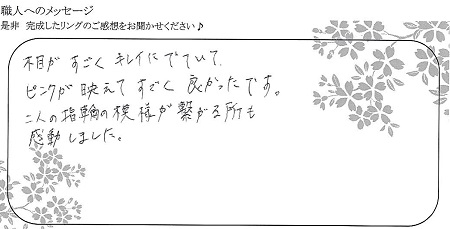 職人へのメッセージ
是非 完成したリングのご感想をお聞かせください♪
木目が すごく キレイに でていて、
ピンクが 映えて すごく 良かったです。
二人の指輪の模様が繋がる所も
感動しました。